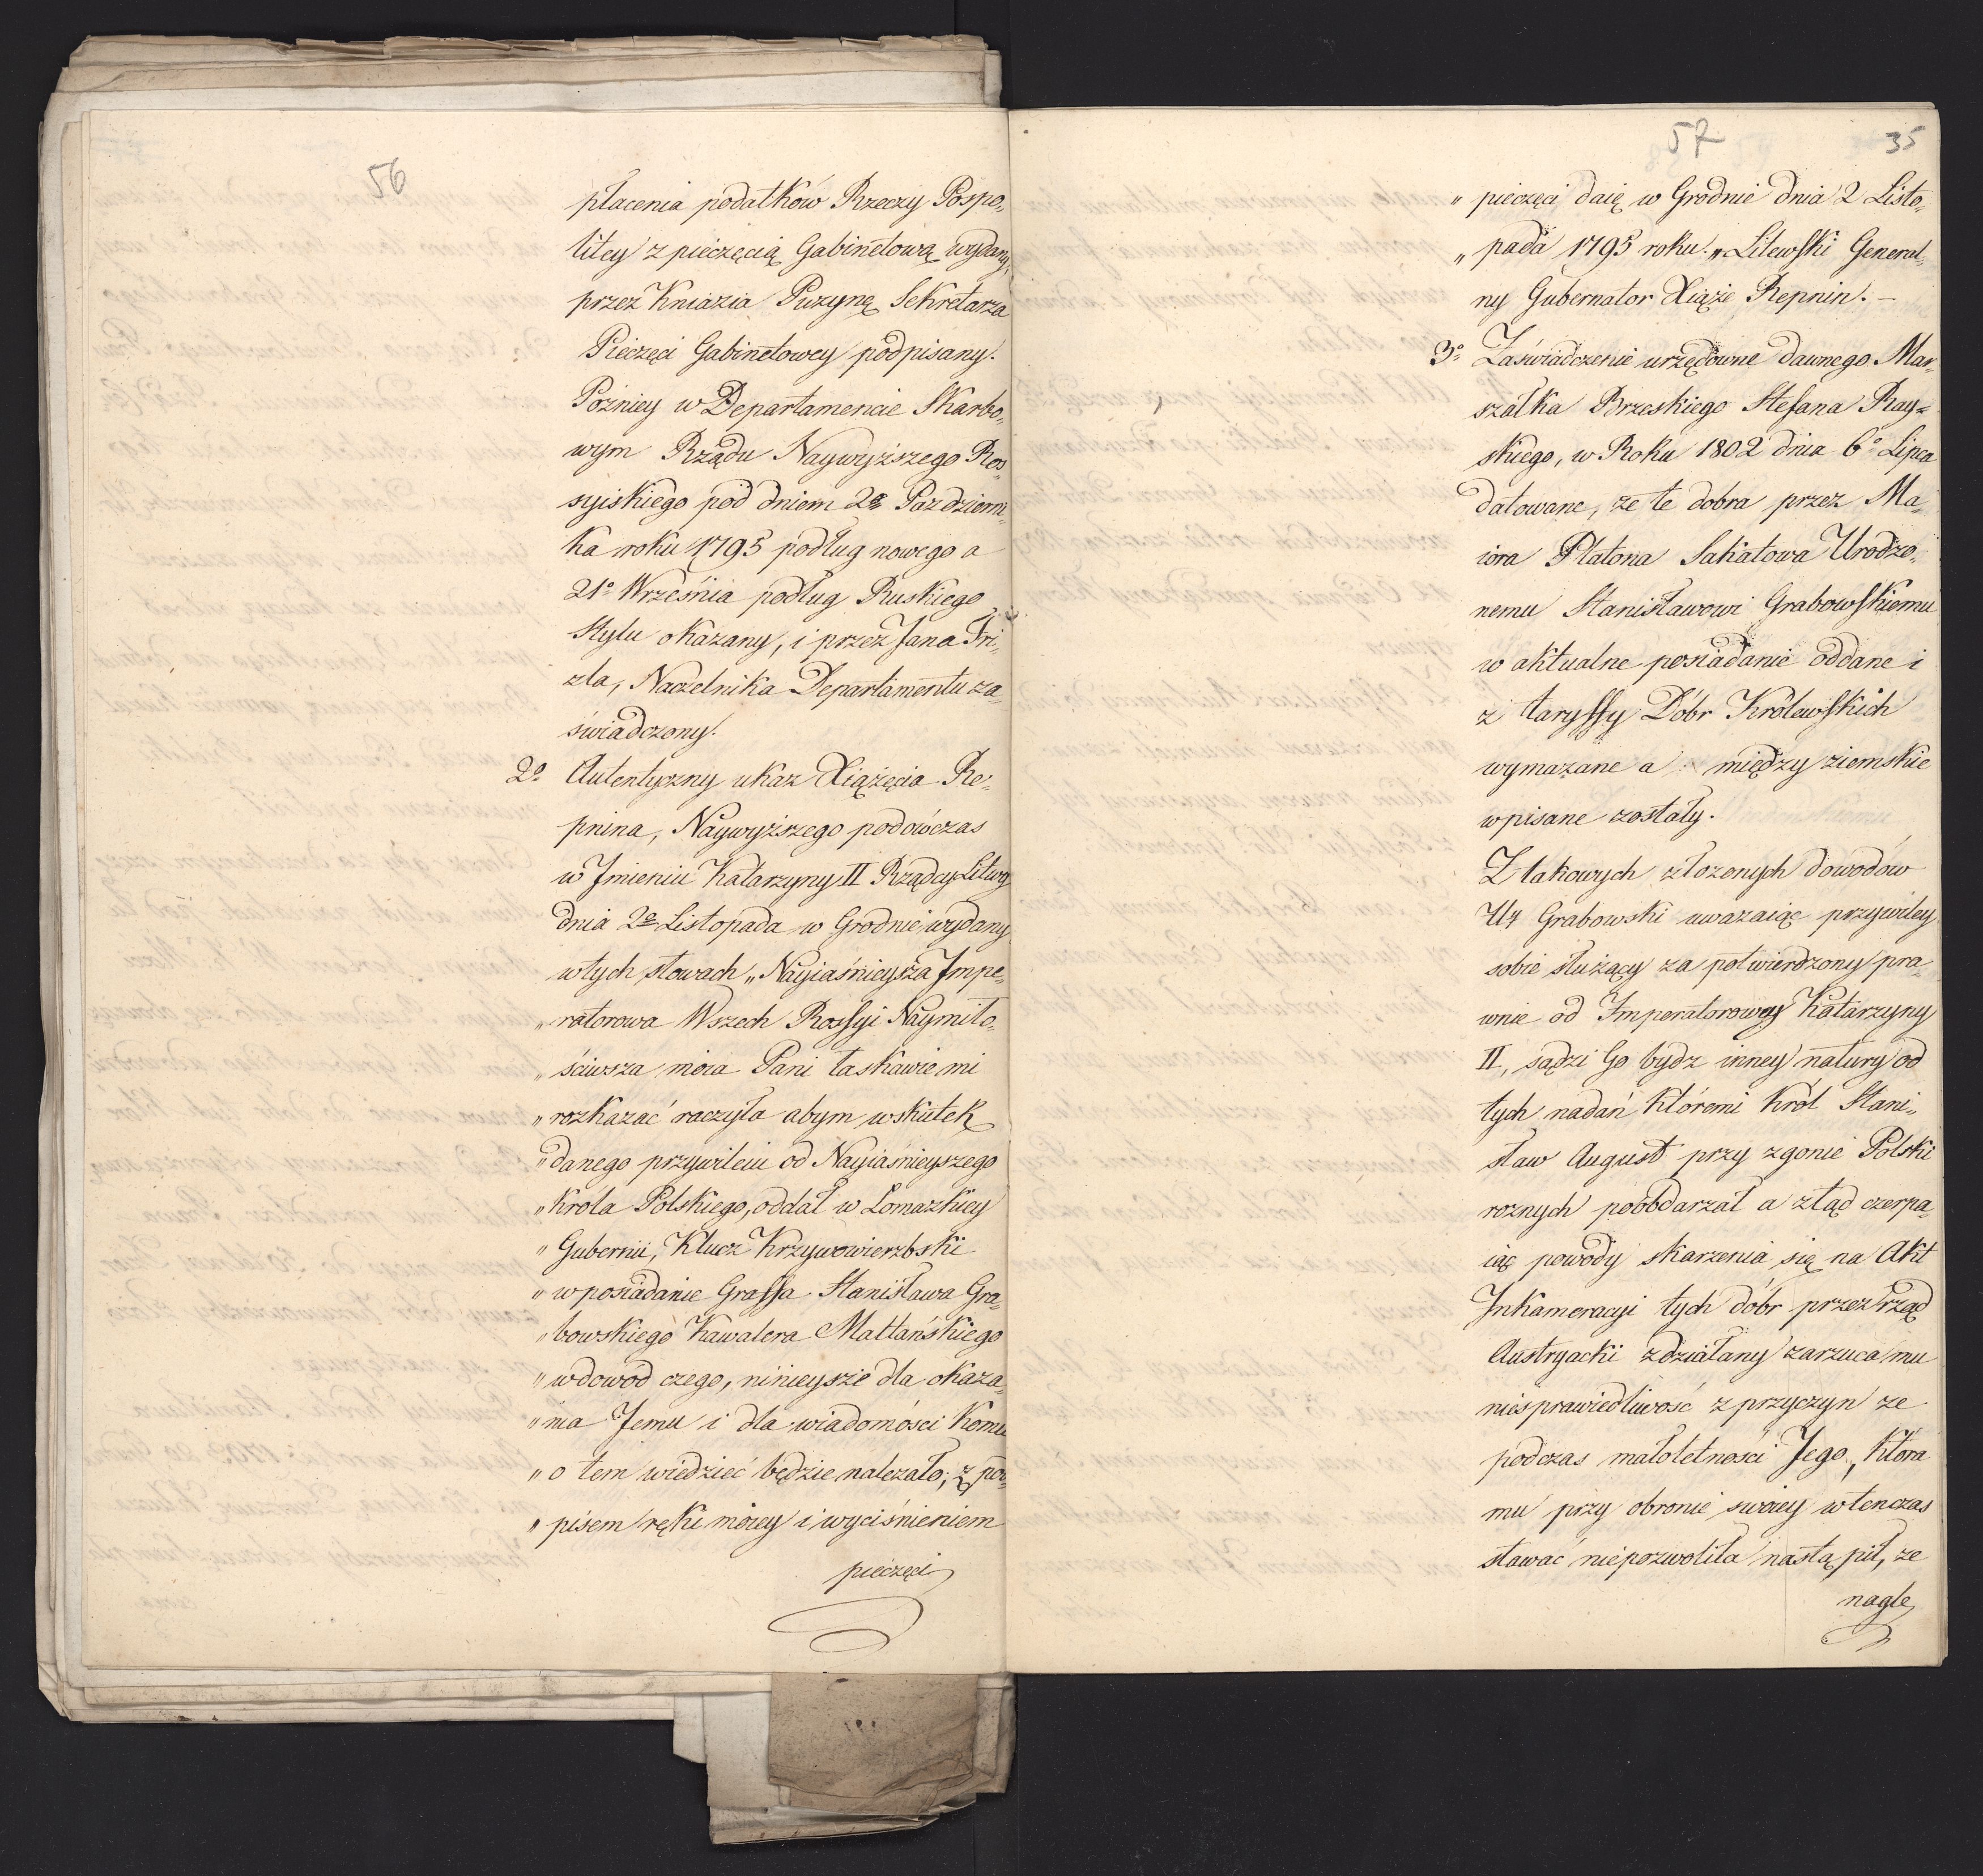 56
płacenia podatków Rzeczy Pospo„
litey z pieczęcią Gabinetową wydany,
przez Kniazia Puzynę Sekretarza
Pieczęci Gabinetowey podpisany.
Poźniey w Departamencie Skarbo„
wym Rządu Naywyższego Ros„
syiskiego pod dniem 2º Pazdzierni„
ka roku 1795 podług nowego a
21º Września podług Ruskiego
Stylu okazany, i przez Jana Fri„
zla, Naczelnika Departamentu za„
świadczony.
2º Autentyczny ukaz Xiążęcia Re„
pnina, Naywyższego podówczas
w Jmieniu Katarzyny II Rządcy Litwy
dnia 2º Listopada w Grodnie wydany
w tych słowach „Nayiaśnieysza Jmpe„
„ratorowa Wszech Rossyi Naymiło„
„ściwsza moia Pani łaskawie mi
„rozkazać raczyła abym w skutek
„danego przywileiu od Nayiaśnieyszego
„Króla Polskiego, oddał w Łomazkiey
„Gubernii, Klucz Krzywowierzbski
„w posiadanie Graffa Stanisława Gra„
„bowskiego Kawalera Maltańskiego
„w dowod czego, ninieysze dla okaza„
„nia Jemu i dla wiadomości komu
„o tem wiedzieć będzie należało; z pod„
„pisem ręki moiey i wyciśnieniem
pieczęci
57
35
„pieczęci daię w Grodnie dnia 2 Listo„
„pada 1795 roku.„ Litewski General„
ny Gubernator Xiąże Repnin. –
3º Zaświadczenie urzędowne dawnego Mar„
szałka Brzeskiego Stefana Ray„
skiego, w Roku 1802 dnia 6º Lipca
datowane, że te dobra przez Ma„
iora Platona Sakatowa Urodzo„
nemu Stanisławowi Grabowskiemu
w aktualne posiadanie oddane i
z taryffy Dóbr Królewskich
wymazane a między ziemskie
wpisane zostały.
Z takowych złożonych dowodów
Ur Grabowski uważaiąc przywiley
sobie służący za potwierdzony pra„
wnie od Imperatorowey Katarzyny
II, sądzi Go bydz inney natury od
tych nadań któremi Król Stani„
sław August przy zgonie Polski
rożnych poobdarzał a ztąd czerpa„
iąc powody skarżenia się na Akt
Jnkameracyi tych dóbr przez rząd
Austryacki zdziałany zarzuca mu
niesprawiedliwość z przyczyn że
podczas małoletności Jego, która
mu przy obronie swoiey wtenczas
stawać niepozwoliła nastąpił, że
nagle